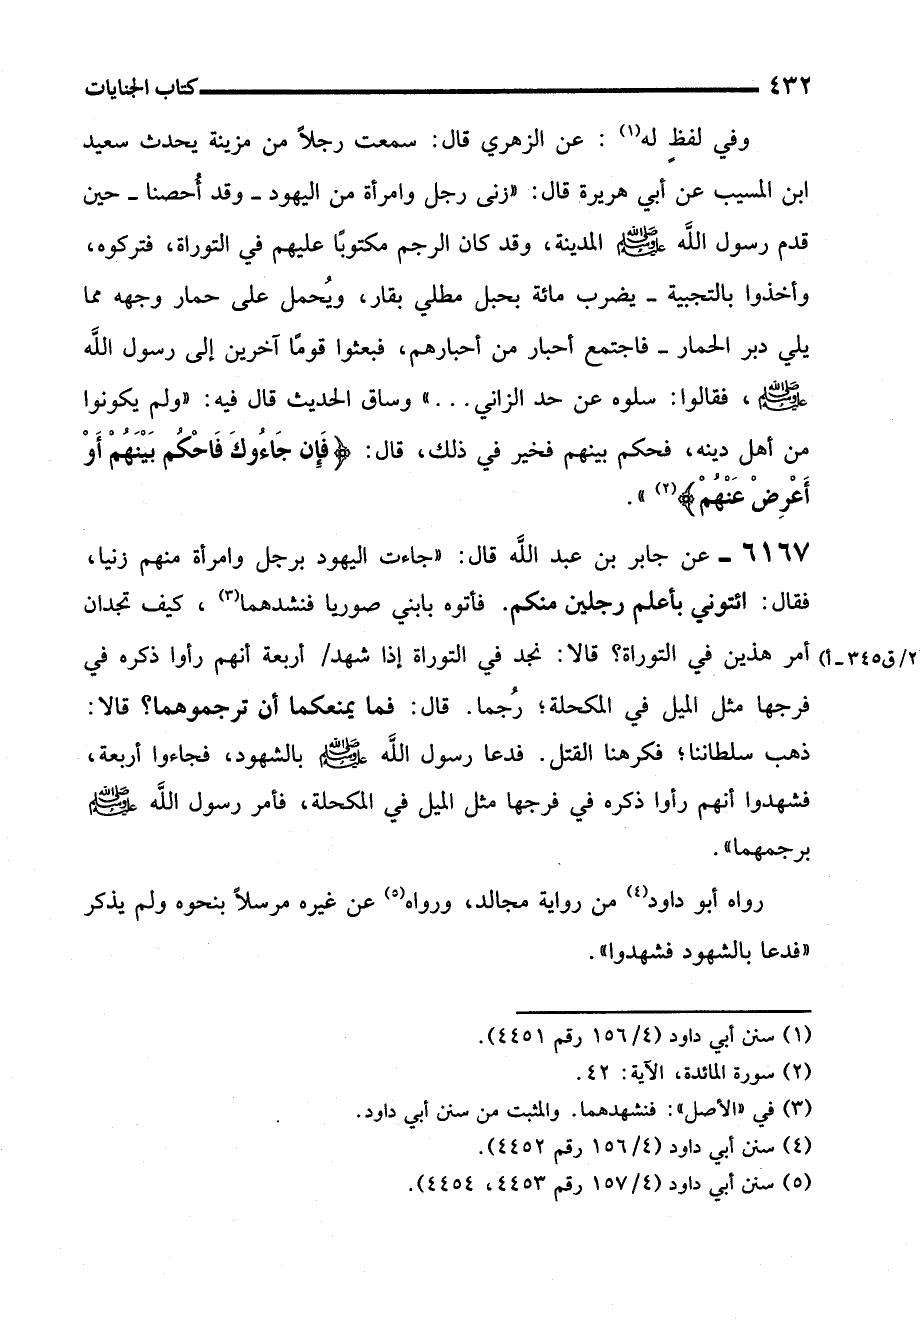 ٤٣٢ كتاب الجنايات
وفي لفظٍ له(١) : عن الزهري قال: سمعت رجلاً من مزينة يحدث سعيد
ابن المسيب عن أبي هريرة قال: «زنى رجل وامرأة من اليهود ـ وقد أُحصنا ـ حين
قدم رسول اللَّه ﷺ المدينة، وقد كان الرجم مكتوبًا عليهم في التوراة، فتركوه،
وأخذوا بالتجبية ـ يضرب مائة بحبل مطلي بقار، ويُحمل على حمار وجهه مما
يلي دبر الحمار ـ فاجتمع أحبار من أحبارهم، فبعثوا قومًا آخرين إلى رسول اللَّه
ﷺ، فقالوا: سلوه عن حد الزاني...» وساق الحديث قال فيه: «ولم يكونوا
من أهل دينه، فحكم بينهم فخير في ذلك، قال: ﴿فَإِن جَاءُوكَ فَاحْكُم بَيْنَهُمْ أَوْ
أَعْرِضْ عَنْهُمْ﴾(٢)».
٦١٦٧ ـ عن جابر بن عبد اللَّه قال: «جاءت اليهود برجل وامرأة منهم زنيا،
فقال: ائتوني بأعلم رجلين منكم. فأتوه بابني صوريا فنشدهما(٣)، كيف تجدان
أمر هذين في التوراة؟ قالا: نجد في التوراة إذا شهد/ أربعة أنهم رأوا ذكره في
٢/ق٣٤٥ـأ)
فرجها مثل الميل في المكحلة؛ رُجما. قال: فما يمنعكما أن ترجموهما؟ قالا:
ذهب سلطاننا؛ فكرهنا القتل. فدعا رسول اللَّه ﷺ بالشهود، فجاءوا أربعة،
فشهدوا أنهم رأوا ذكره في فرجها مثل الميل في المكحلة، فأمر رسول اللَّه ﷺ
برجمهما».
رواه أبو داود(٤) من رواية مجالد، ورواه(٥) عن غيره مرسلاً بنحوه ولم يذكر
«فدعا بالشهود فشهدوا».
(١) سنن أبي داود (٤/١٥٦ رقم ٤٤٥١).
(٢) سورة المائدة، الآية: ٤٢.
(٣) في «الأصل»: فنشهدهما. والمثبت من سنن أبي داود.
(٤) سنن أبي داود (٤/١٥٦ رقم ٤٤٥٢).
(٥) سنن أبي داود (٤/١٥٧ رقم ٤٤٥٣، ٤٤٥٤).